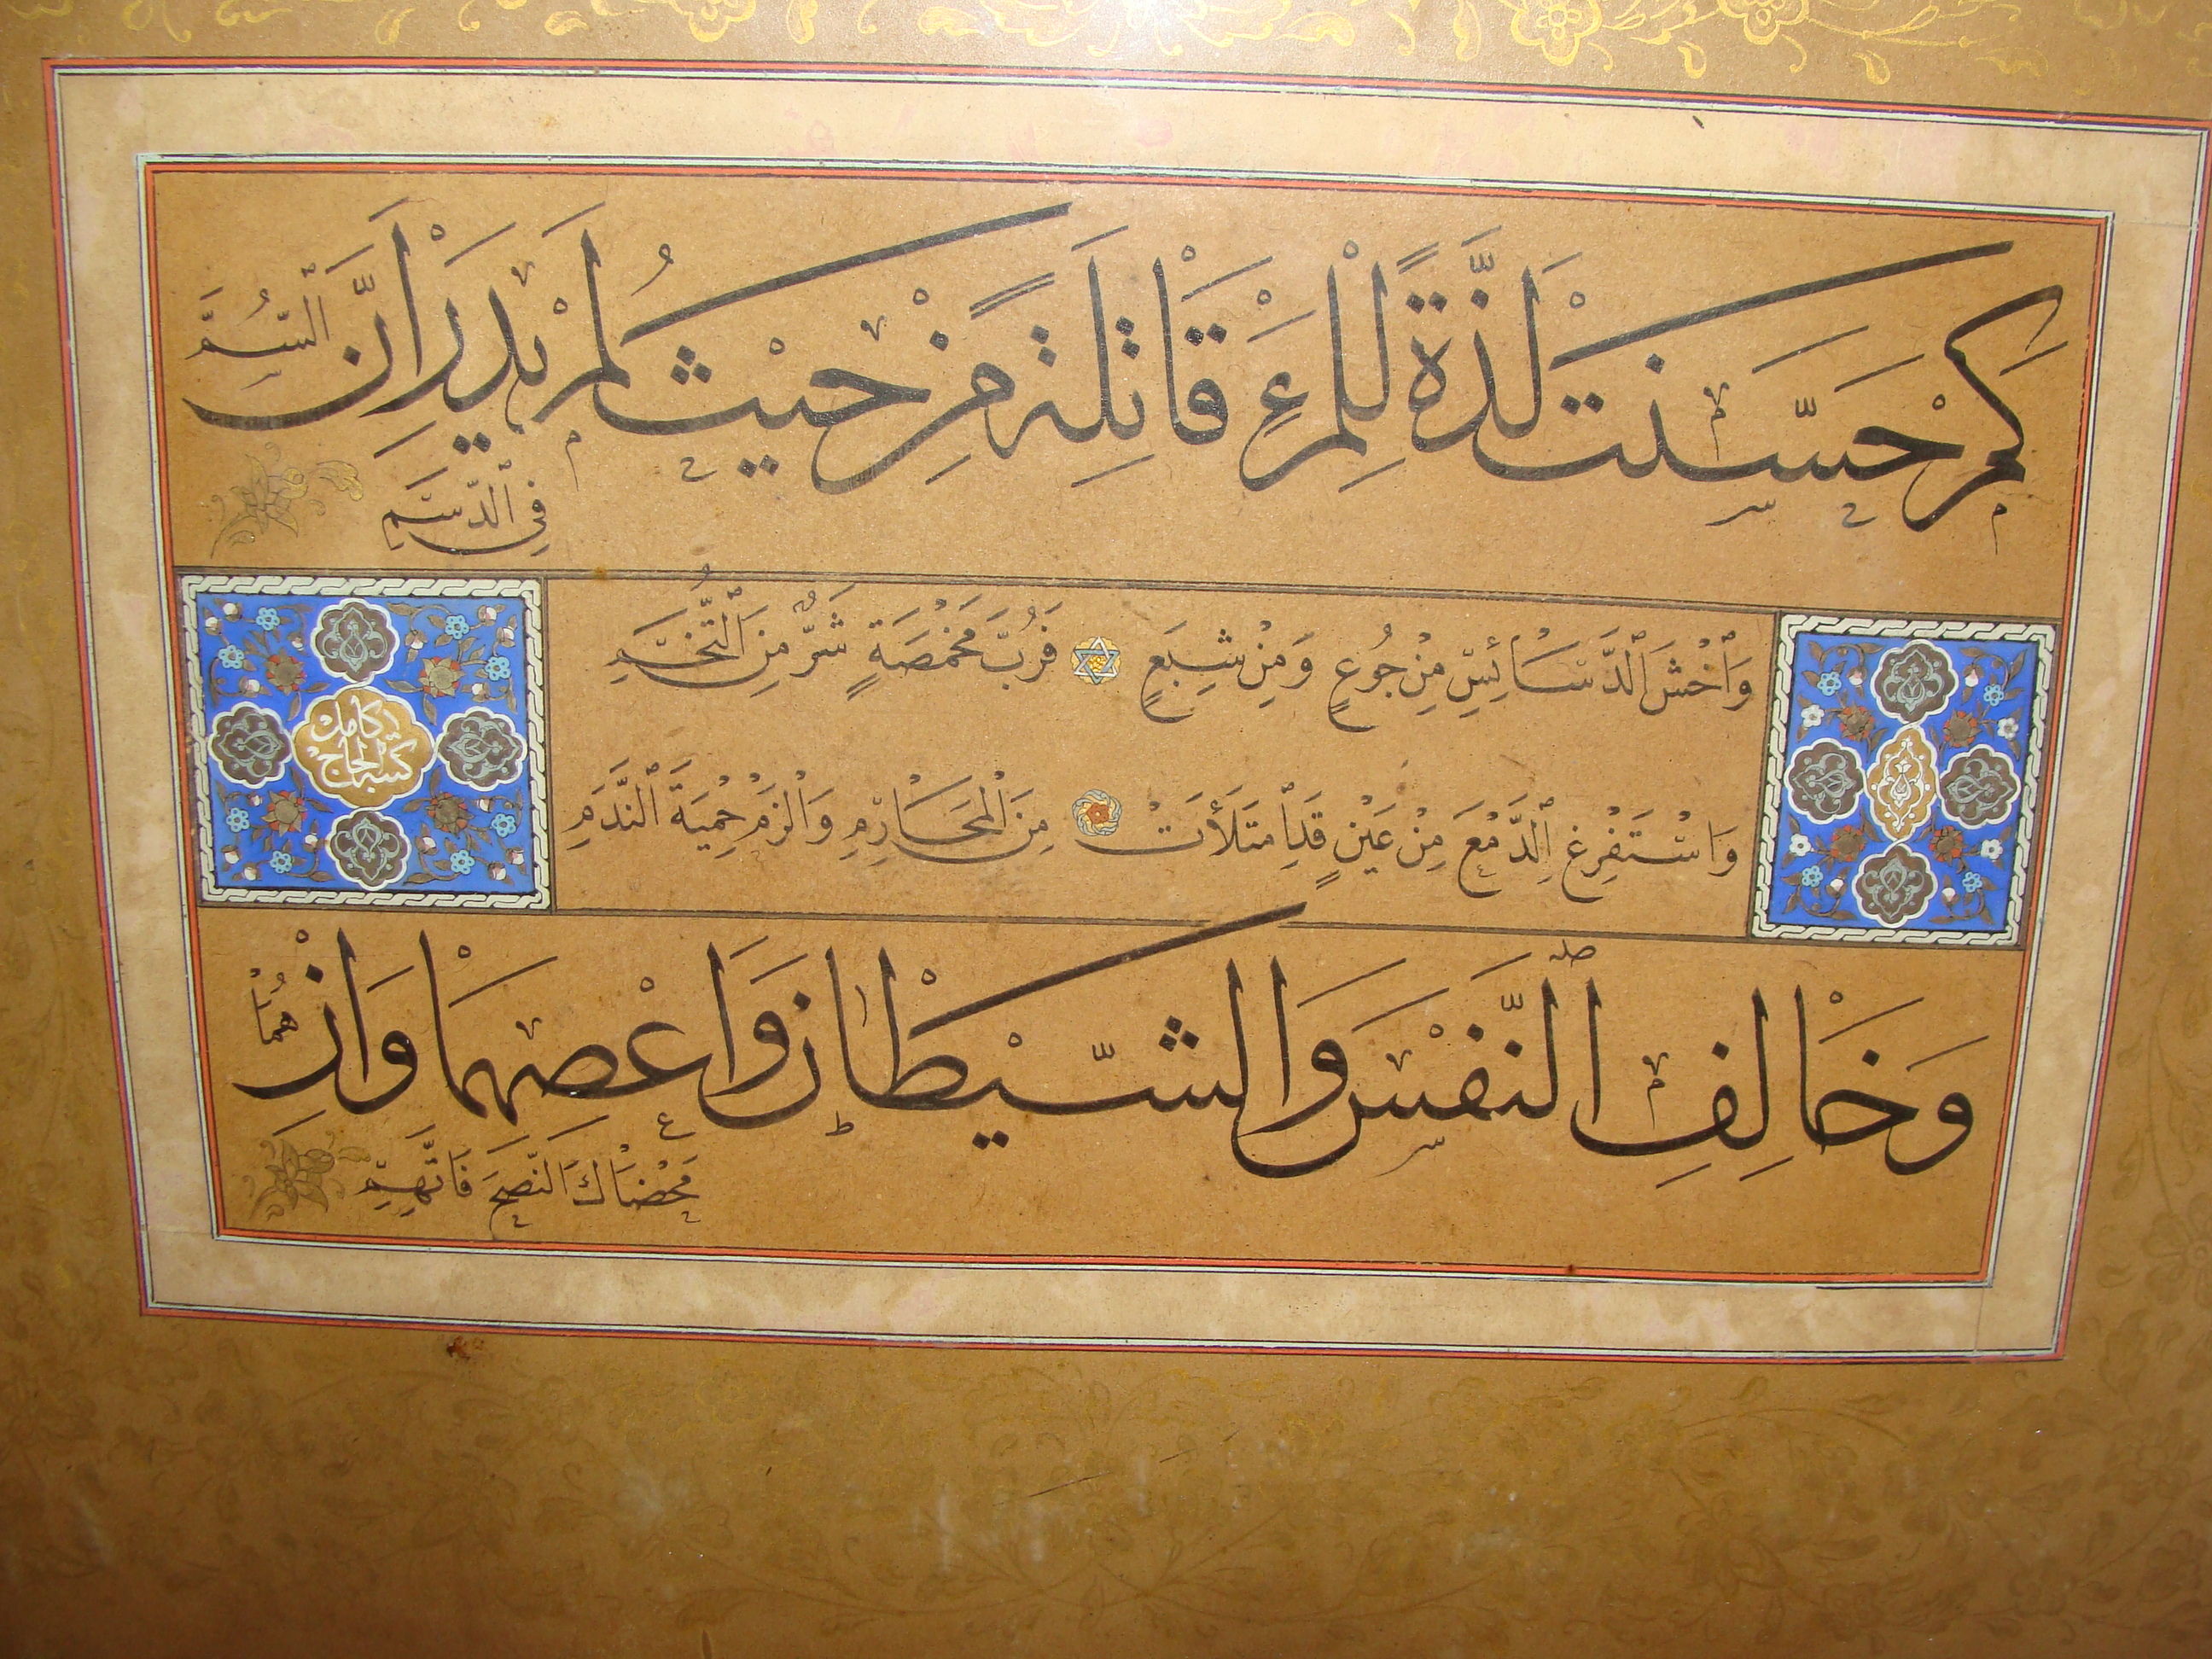 كَمْ حَسَّنَتْ لَذَّةً لِلْمَرْءِ قَاتِلَةً مِنْ حَيْثُ لَمْ يَدْرِ أَنَّ السُّمَّ
فِي الدَّسَمِ
وَاخْشَ الدَّسَائِسَ مِنْ جُوعٍ وَمِنْ شِبَعٍ فَرُبَّ مَخْمَصَةٍ شَرٌّ مِنَ التُّخَمِ
وَاسْتَفْرِغِ الدَّمْعَ مِنْ عَيْنٍ قَدِ امْتَلَأَتْ مِنَ الْمَحَارِمِ وَالْزَمْ حِمْيَةَ النَّدَمِ
وَخَالِفِ النَّفْسَ وَالشَّيْطَانَ وَاعْصِهِمَا وَإِنْ هُمَا
مَحَضَاكَ النُّصْحَ فَاتَّهِمِ